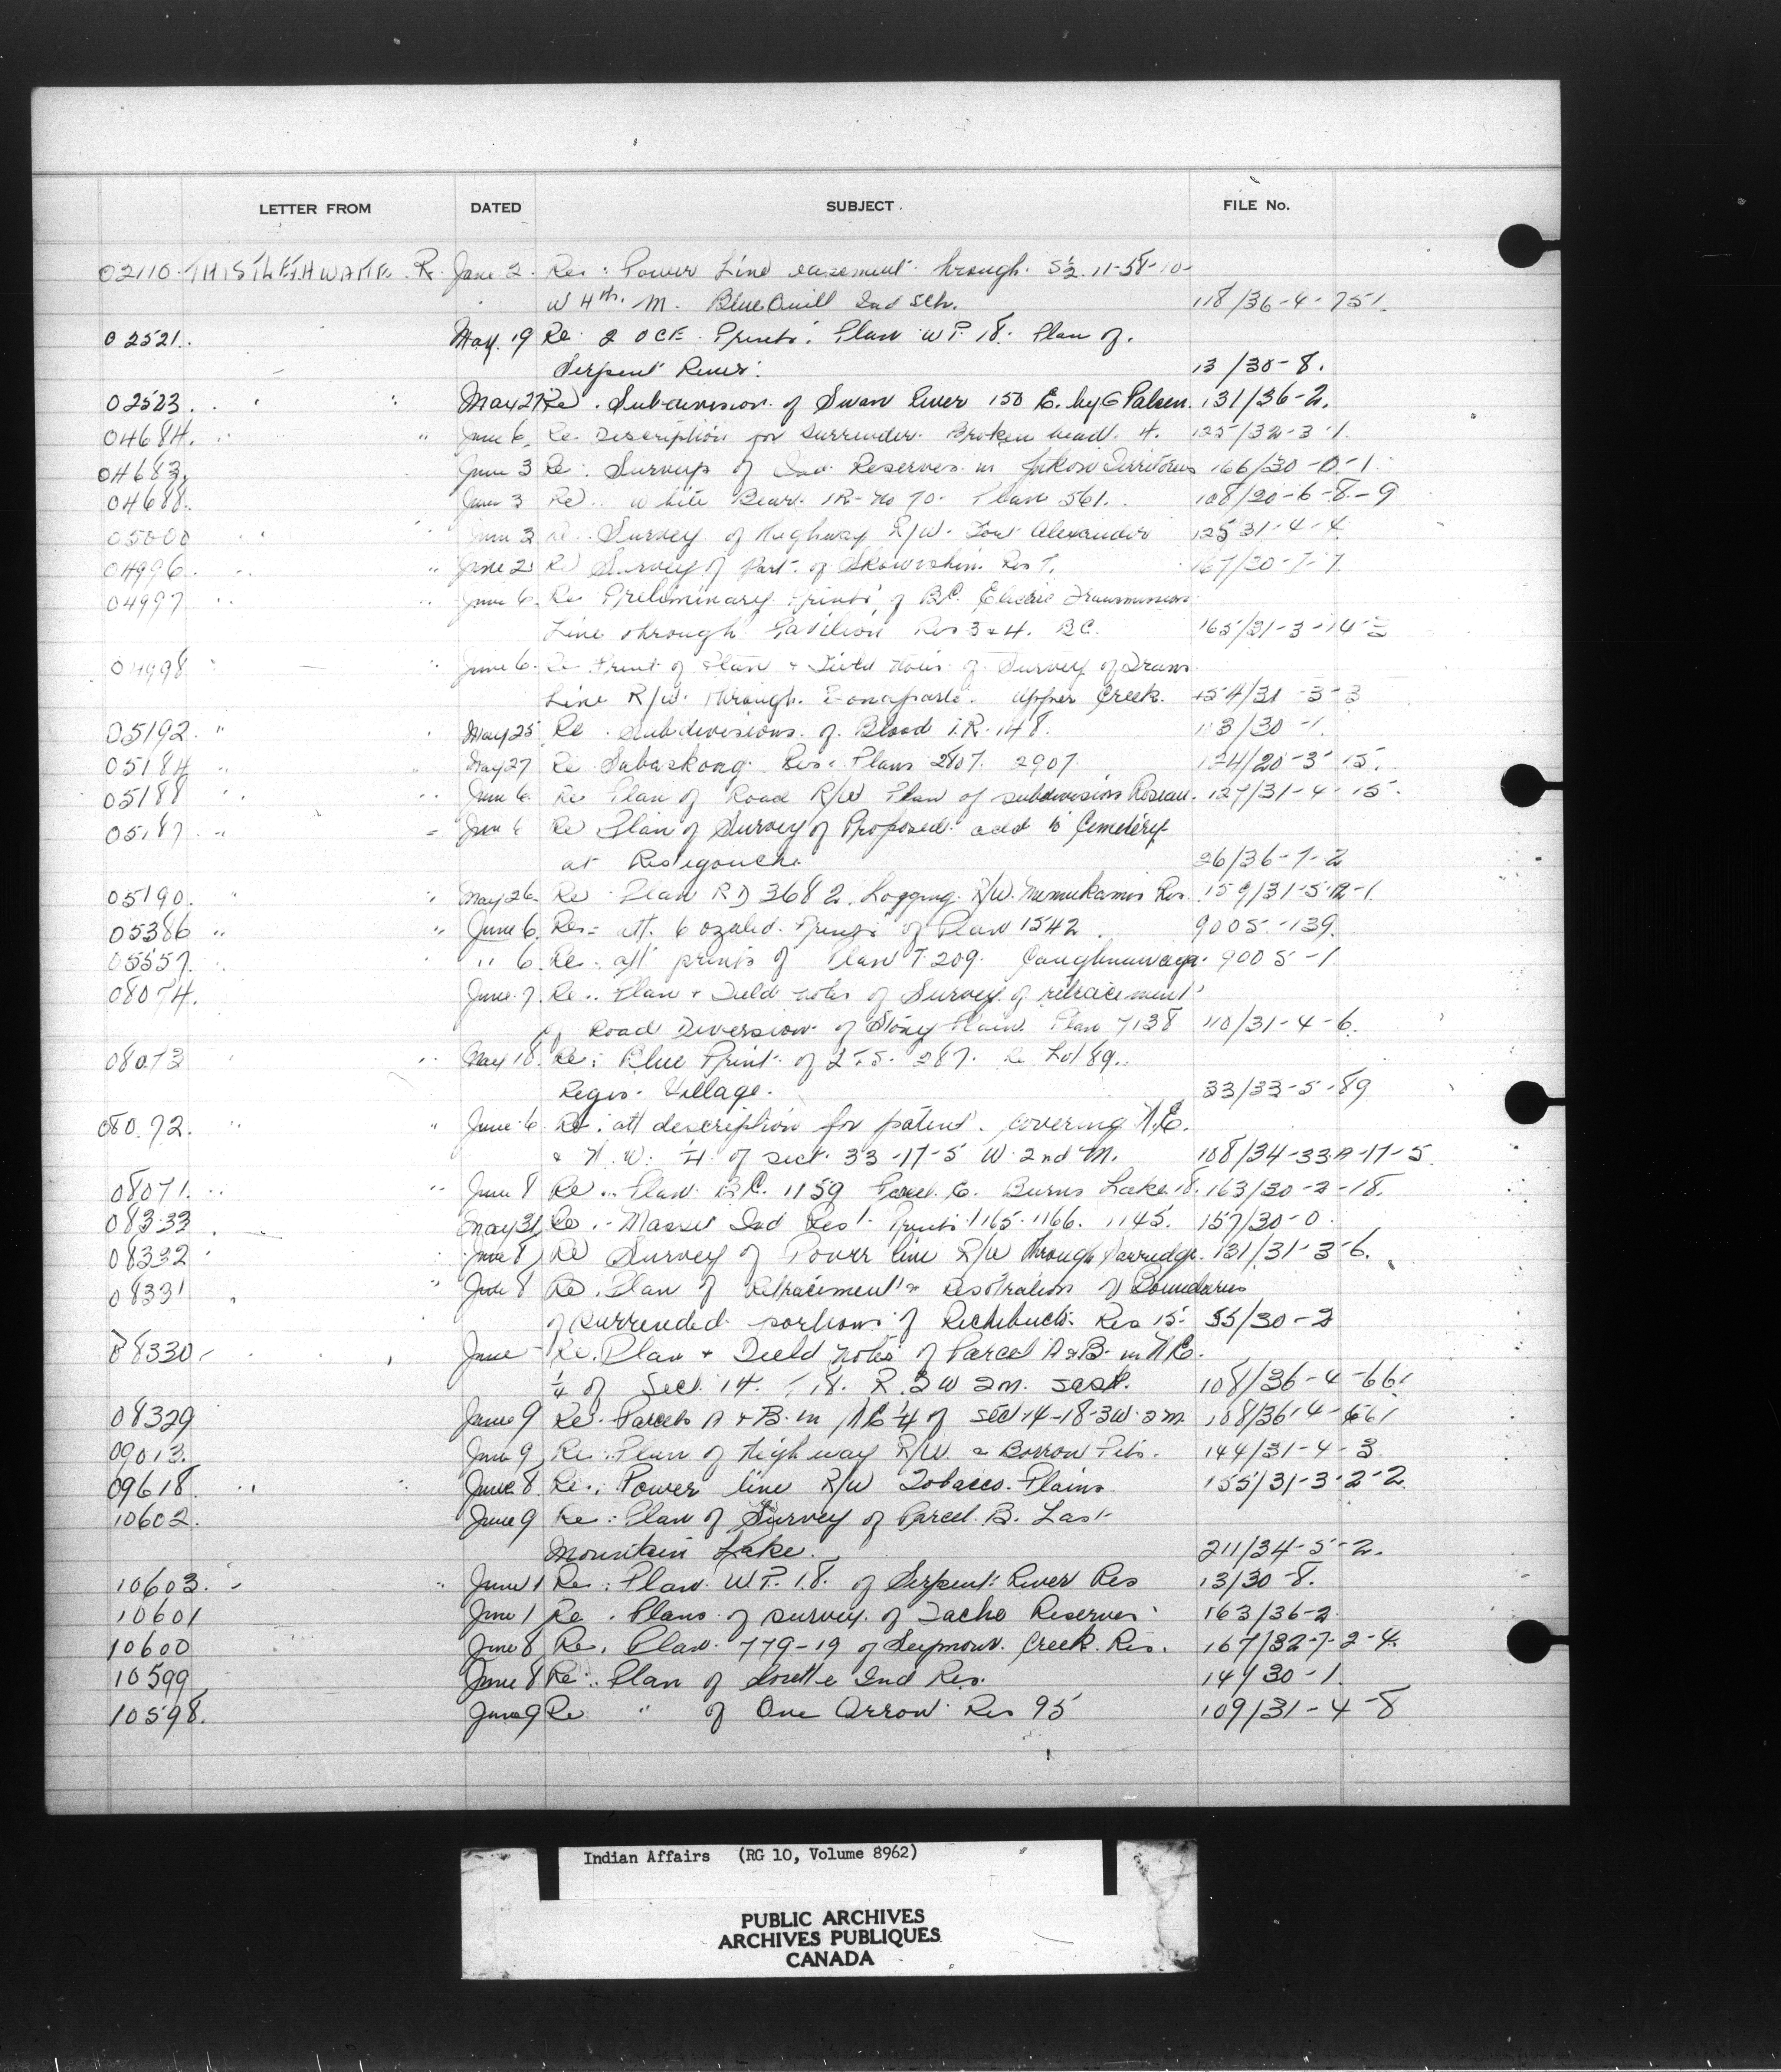 LETTER FROM DATED SUBJECT FILE No.
02110 THISTLETHWAITE. R. June 2. Re: Power Line easement through. S½ 11-58-10-
W 4th. M. Blue Quill Ind Sch. 118/36-4-751.
02521. May. 19 Re 2 OCE Prints. Plan WP. 18. Plan of.
Serpent River. 13/30-8.
02523. " " May 27 Re. Subdivision of Swan River 150 E. by G Palsen. 131/36-2.
04684. " " June 6. Re Description for Surrender. Broken head. 4. 125/32-3-1.
04683. June 3 Re: Surveys of Ind Reserves in Yukon Territories 166/30-0-1.
04688. June 3 Re.. White Bear. IR-No 70. Plan 561. 108/20-6-8-9
05000 " " June 3 Re. Survey of Highway R/W. Fort Alexander 125 31-4-4
04996. " " June 2 Re Survey of Part. of Skowishin Res 7. 167/20-7-7
04997 " " June 6. Re Preliminary prints of BC. Electric Transmission
Line through Pavilion Res 3 & 4. BC. 165/31-3-14-2
04998 " " June 6. Re Print of Plan & Field Notes of Survey of Trans
Line R/W. through. Bonaparte. Upper Creek. 154/31-3-3
05192. " " May 25 Re. subdivisions. of. Blood I.R. 148. 103/30-1.
05184 " May 27 Re Sabaskong. Res. Plans 2807. 2907 124/20-3-15.
05188 " " June 6. Re Plan of Road R/W Plan of subdivision Roseau. 127/31-4-15.
05187. " " June 6 Re Plan of Survey of Proposed add to Cemetery
at Restigouche 26/36-7-2
05190. " " May 26. Re Plan RD 3682. Logging. R/W. Numukamis Res. 159/31-5-12-1.
05386 " " June 6. Re: att. 6 ozalid. prints of Plan 1542. 9005-139.
05557. " " 6. Re. att prints of Plan T. 209. Caughnawaga. 9005-1
08074. June 7. Re.. Plan & Field notes of Survey of retracement
of Road Diversion of Stony Plain. Plan 7138 110/31-4-6.
08073 " " May 18. Re: Blue Print. of 287. Re Lot 89..
Regis. Village. 33/33-5-89
08072. " " June 6 Re: att description for patent. covering N.E.
& N.W. ¼. of sect. 33-17-5 W. 2nd M. 108/34-33A-17-5.
08071. " " June 8 Re.. Plan. BC. 1159 Parcel. C. Burns Lake 18. 163/30-2-18.
08333 May 31 Re.. Masset Ind Res 1. Prints 1165. 1166. 1145. 157/30-0.
08332 June 8 Re Survey of Power line R/W through Sawridge. 131/31-3-6.
08331 " June 8 Re. Plan of Retracement & Restoration of Boundaries
of surrended portions of Richibucto Res 15. 55/30-2
08330 June Re. Plan & Field notes of Parcel A & B. in NE.
¼ of Sect. 14. T 18. R. 3 W 2 m. Sask. 108/36-4-661
08329 June 9 Re. Parcels A & B. in NE ¼ of Sect 14-18-3W-2m 108/36-4-661
09013. June 9 Re: Plan of Highway R/W. & Borrow Pits. 144/31-4-3
09618. " " June 8. Re: Power line R/W Tobacco. Plains 155/31-3-2-2
10602. June 9 Re: Plan of Survey of Parcel. B. Last
Mountain Lake. 211/34-5-2.
10603. " " June 1 Re: Plan. W.P. 18. of Serpent River Res 13/30-8.
10601 June 1 Re. Plans of survey. of Tache Reserves 163/36-2
10600 June 8 Re. Plan. 779-19 of Seymour. Creek. Res. 167/32-7-2-4.
10599 June 8 Re: Plan of Lorette Ind Res. 14/30-1.
10598. June 9 Re " of One Arrow Res 95 109/31-4-8
Indian Affairs (RG 10, Volume 8962)
PUBLIC ARCHIVES
ARCHIVES PUBLIQUES
CANADA